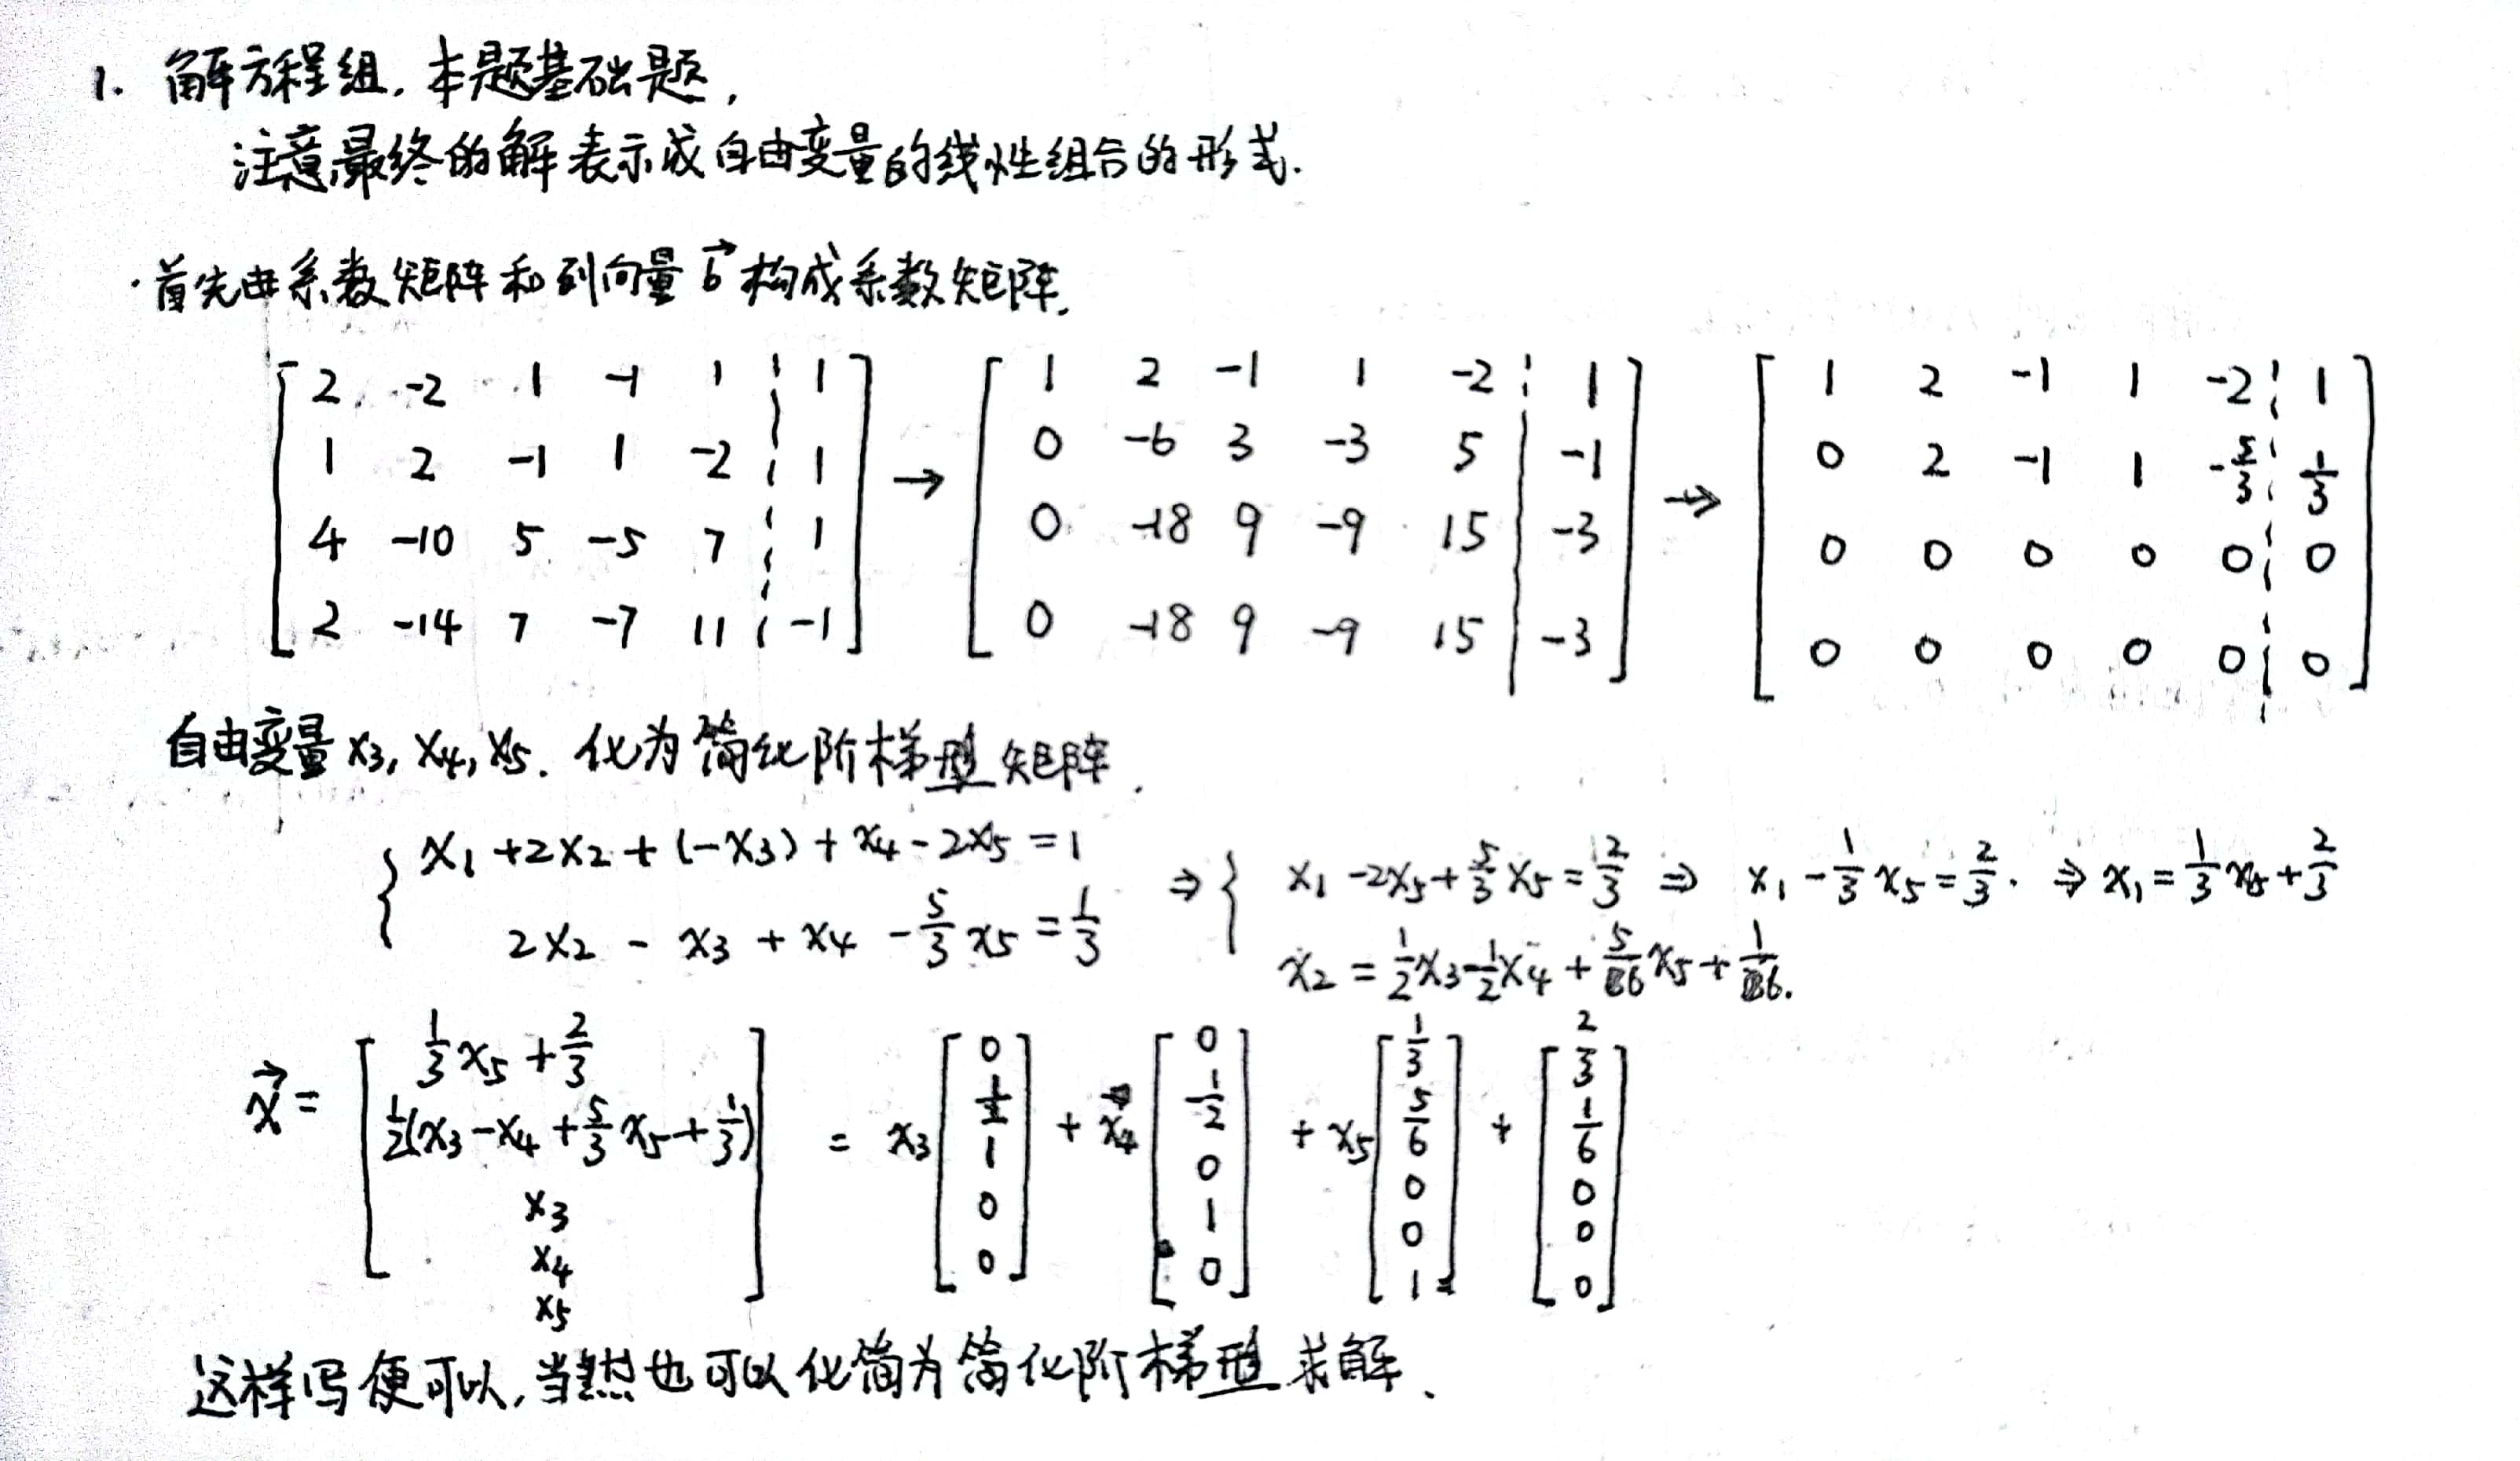 1. 解方程组, 本题基础题,
注意最终的解表示成自由变量的线性组合的形式.
·首先由系数矩阵和列向量 b⃗ 构成系数矩阵.
[2 -2 1 -1 1 ¦ 1] [1 2 -1 1 -2 ¦ 1] [1 2 -1 1 -2 ¦ 1]
[1 2 -1 1 -2 ¦ 1] → [0 -6 3 -3 5 | -1] → [0 2 -1 1 -5/3 ¦ 1/3]
[4 -10 5 -5 7 ¦ 1] [0 -18 9 -9 15 | -3] [0 0 0 0 0 ¦ 0]
[2 -14 7 -7 11 ¦ -1] [0 -18 9 -9 15 | -3] [0 0 0 0 0 ¦ 0]
自由变量 x3, x4, x5. 化为简化阶梯型矩阵.
{ x1 + 2x2 + (-x3) + x4 - 2x5 = 1 ⇒ { x1 - 2x5 + 5/3 x5 = 2/3 ⇒ x1 - 1/3 x5 = 2/3. ⇒ x1 = 1/3 x5 + 2/3
2x2 - x3 + x4 - 5/3 x5 = 1/3 x2 = 1/2 x3 - 1/2 x4 + 5/6 x5 + 1/6.
x⃗ = [1/3 x5 + 2/3 ; 1/2(x3 - x4 + 5/3 x5 + 1/3) ; x3 ; x4 ; x5] = x3 [0 ; 1/2 ; 1 ; 0 ; 0] + x4 [0 ; -1/2 ; 0 ; 1 ; 0] + x5 [1/3 ; 5/6 ; 0 ; 0 ; 1] + [2/3 ; 1/6 ; 0 ; 0 ; 0]
这样写便可以, 当然也可以化简为简化阶梯型求解.